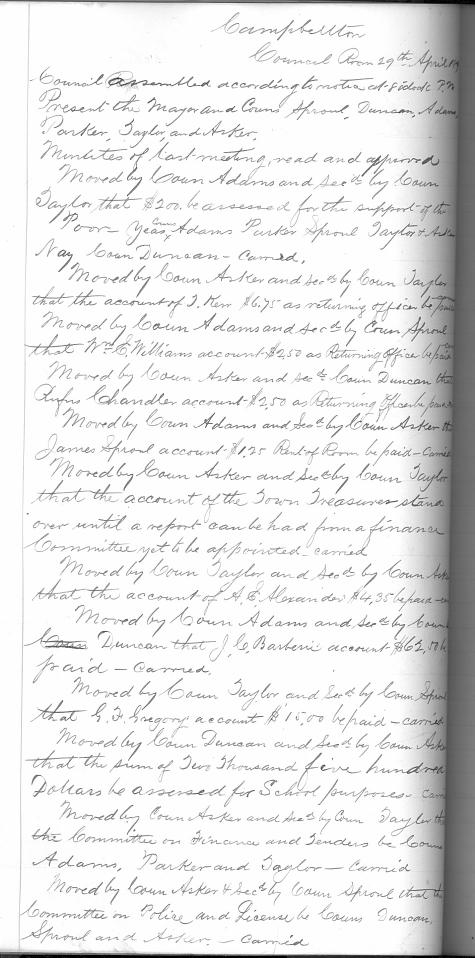 Campbellton
Council Room 29th April
Council assembled according to notice at 8 o'clock P.M
Present the Mayor and Couns Sproul, Duncan, Adams,
Parker, Taylor, and Asker.
Minutes of last meeting, read and approved
Moved by Coun Adams and Secd by Coun
Taylor that $200. be assessed for the support of the
Poor – Yeas Couns Adams Parker Sproul Taylor &
Nay Coun Duncan – Carried.
Moved by Coun Asker and Secd by Coun Taylor
that the account of J. Kerr $6.75 as returning officer be paid
Moved by Coun Adams and Secd by Coun Sproul
that Wm C Williams account $2.50 as Returning Office be paid
Moved by Coun Asker and Secd Coun Duncan that
Rufus Chandler account $2.50 as Returning Officer be paid
Moved by Coun Adams and Secd by Coun Asker
James Sproul account $1.25 Rent of Room be paid – Carried
Moved by Coun Asker and Secd by Coun Taylor
that the account of the Town Treasurer stand
over until a report can be had from a finance
Committee yet to be appointed – carried
Moved by Coun Taylor and Secd by Coun Asker
that the account of A. E. Alexander $4.35 be paid
Moved by Coun Adams and Secd by Coun
Coun Duncan that J. C. Barberie account $62.50 be
paid – Carried.
Moved by Coun Taylor and Secd by Coun Sproul
that G. F. Gregory account $15.00 be paid – carried
Moved by Coun Duncan and Secd by Coun Asker
that the sum of Two Thousand five hundred
Dollars be assessed for School purposes –
Moved by Coun Asker and Secd by Coun Taylor
the Committee on Finance and Tenders be Couns
Adams, Parker and Taylor – Carried
Moved by Coun Asker & Secd by Coun Sproul that the
Committee on Police and License be Couns Duncan,
Sproul and Asker. – Carried